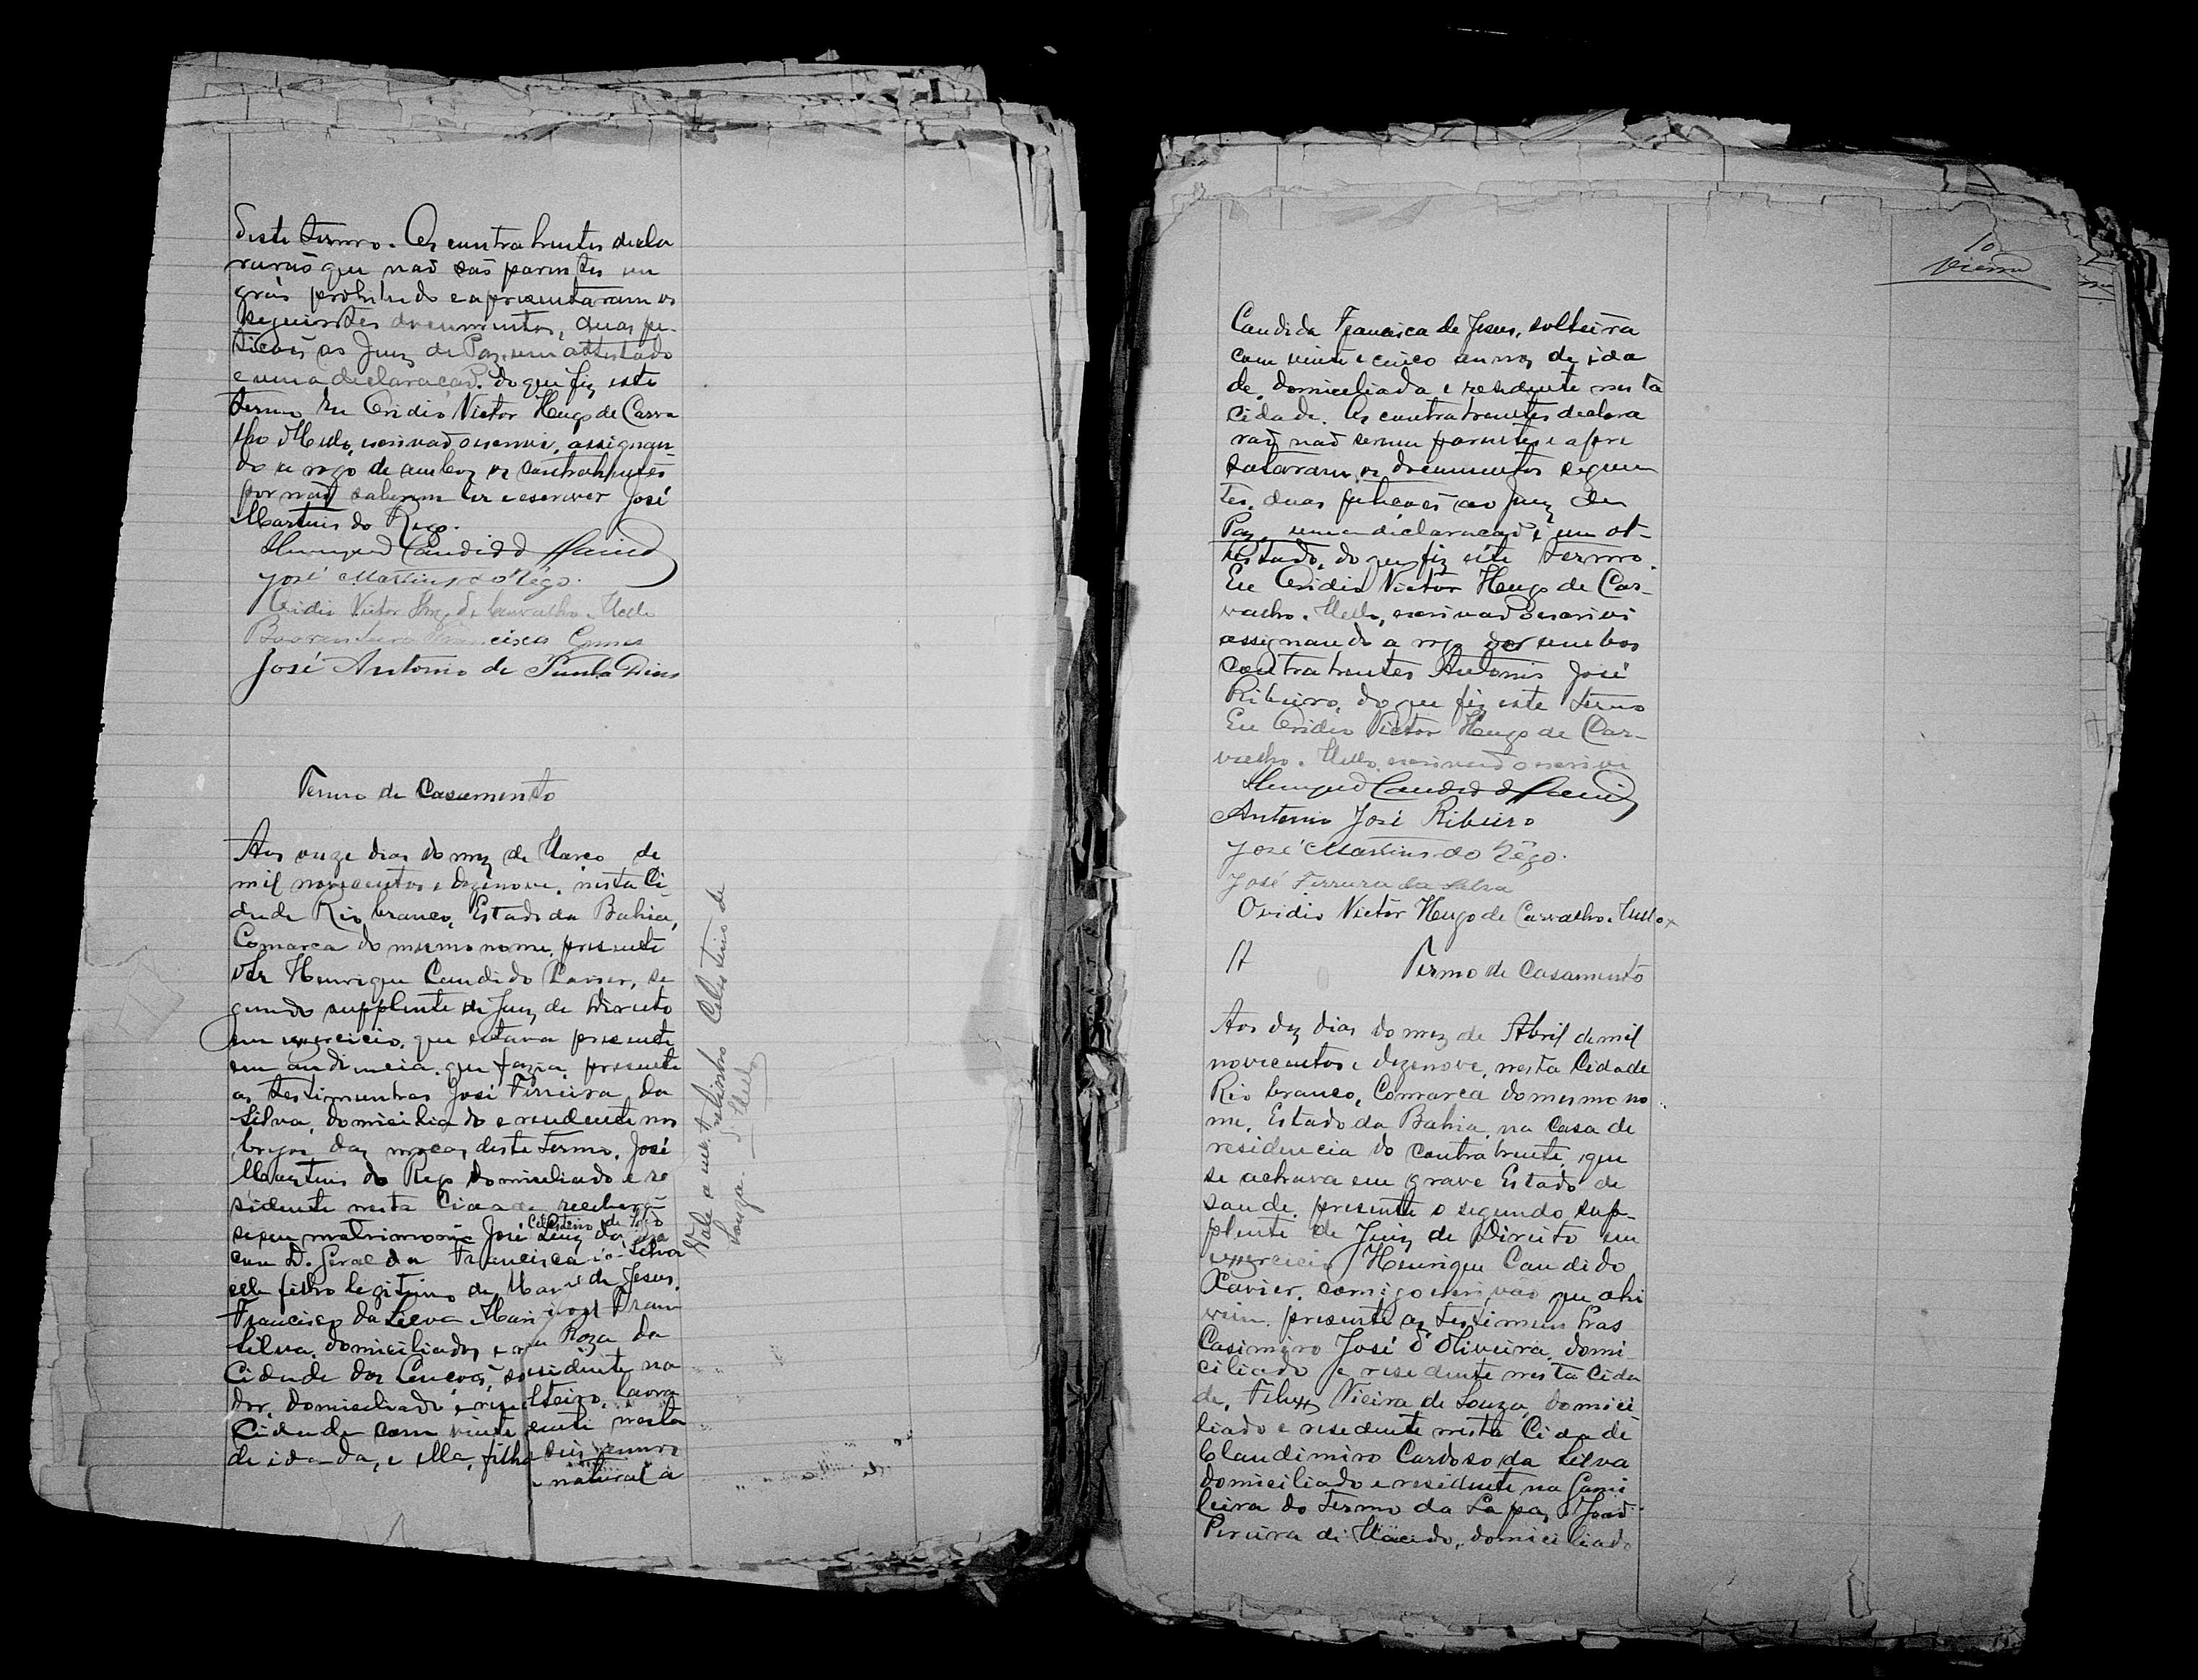 deste termo. Os contrahentes decla
raraõ que naõ saõ parentes em
gráo prohibido e apresentaram os
seguintes documentos, duas pe-
ticoẽs ao Juiz de Paz, um attestado
e uma declaracaõ. do que fiz este
termo Eu Ovidio Victor Hugo de Carva
lho Mello, escrivaõ o escrevi, assignan-
do a rogo de ambos os contrahentes
por naõ saberem ler e escrever José
Martins do Rego.
Henrique Candido Xavier
José Martins do Rêgo.
Ovidio Victor Hugo de Carvalho Mello
Boaventura Francisco Gomes
José Antonio de Dias
Termo de Casamento
Aos onze dias do mez de Marco de
mil novecentos e dezenove, nesta Ci-
dade Rio branco, Estado da Bahia,
Comarca do mesmo nome, presente
Henrique Candido Xavier, se
gundo supplente de Juiz de Direito
em exercicio, que estava presente
em audiencia que fazia, presente
as testimunhas José Ferreira da
Silva, domiciliado e residente nos
brejos das mocas deste termo, José
Martins do Rego domiciliado e re
sidente nesta Cidade receberaõ
se em matrimonio José Luiz da
Celestino de
com D. Geralda Francisca
Silva
elle filho legitimo de de Jesus.
Francisco da Silva
Silva, domiciliados e Roza da
Cidade dos Lencoẽs, residente na
dor, domiciliado e solteiro, lavra
Cidade com vinte nesta
de idade, e ella, filha annos
natural a
Vale a entrelinha Celestino de
Souza. Mello
10
Vieira
Candida Francisca de Jesus, solteira
com vinte e cinco annos de ida
de, domiciliada e residente nesta
cidade. Os contrahentes declara
raõ naõ serem parentes e apre
sentaram os documentos seguin
tes, duas peticoẽs ao Juiz de
Paz, uma declaracaõ e um at-
testado, do que fiz este termo.
Eu Ovidio Victor Hugo de Car-
valho Mello, escrivaõ o escrevi
assignando a rogo dos ambos
contrahentes Antonio José
Ribeiro, do que fiz este termo
Eu Ovidio Victor Hugo de Car-
valho Mello, escrivaõ o escrevi
Henrique Candido Xavier
Antonio José Ribeiro
José Martins do Rêgo.
José Ferreira da Silva
Ovidio Victor Hugo de Carvalho Mello
Termo de Casamento
Aos dez dias do mez de Abril de mil
novecentos e dezenove, nesta Cidade
Rio branco, Comarca do mesmo no
me, Estado da Bahia, na casa de
residencia do contrahente, que
se achava em grave Estado de
saude, presente o segundo sup-
plente de Juiz de Direito em
exercicio Henrique Candido
Xavier, comigo escrivão que ahi
vim, presente as testimunhas
Casimiro José d'Oliveira, domi
ciliado e residente nesta Cida
de, Felix Vieira de Souza, domici
liado e residente nesta Cidade
Claudimiro Cardoso da Silva
domiciliado e residente na Game
leira do termo da Lapa, João
Pereira de Macedo, domiciliado